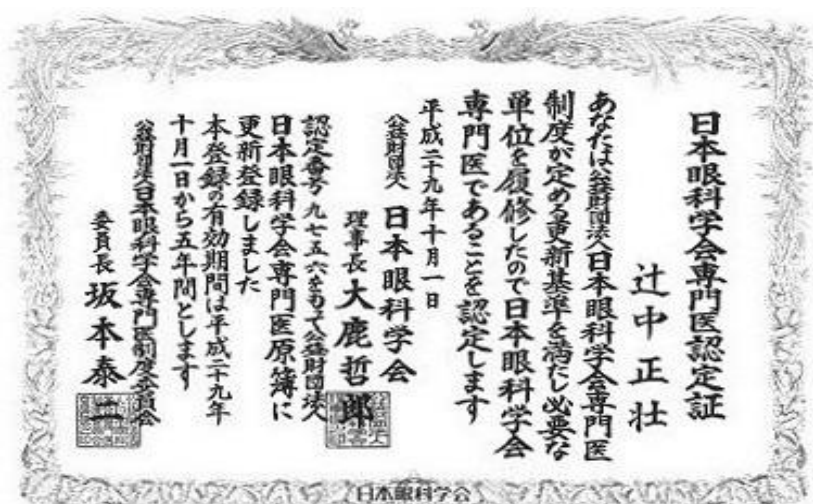 日本眼科学会専門医認定証
辻中正壮
あなたは公益財団法人日本眼科学会専門医
制度が定める更新基準を満たし必要な
単位を履修したので日本眼科学会
専門医であることを認定します
平成二十九年十月一日
公益財団法人 日本眼科学会
理事長 大鹿哲郎
認定番号 九七五六をもって公益財団法人
日本眼科学会専門医原簿に
更新登録しました
本登録の有効期間は平成二十九年
十月一日から五年間とします
公益財団法人日本眼科学会専門医制度委員会
委員長 坂本泰二
日本眼科学会